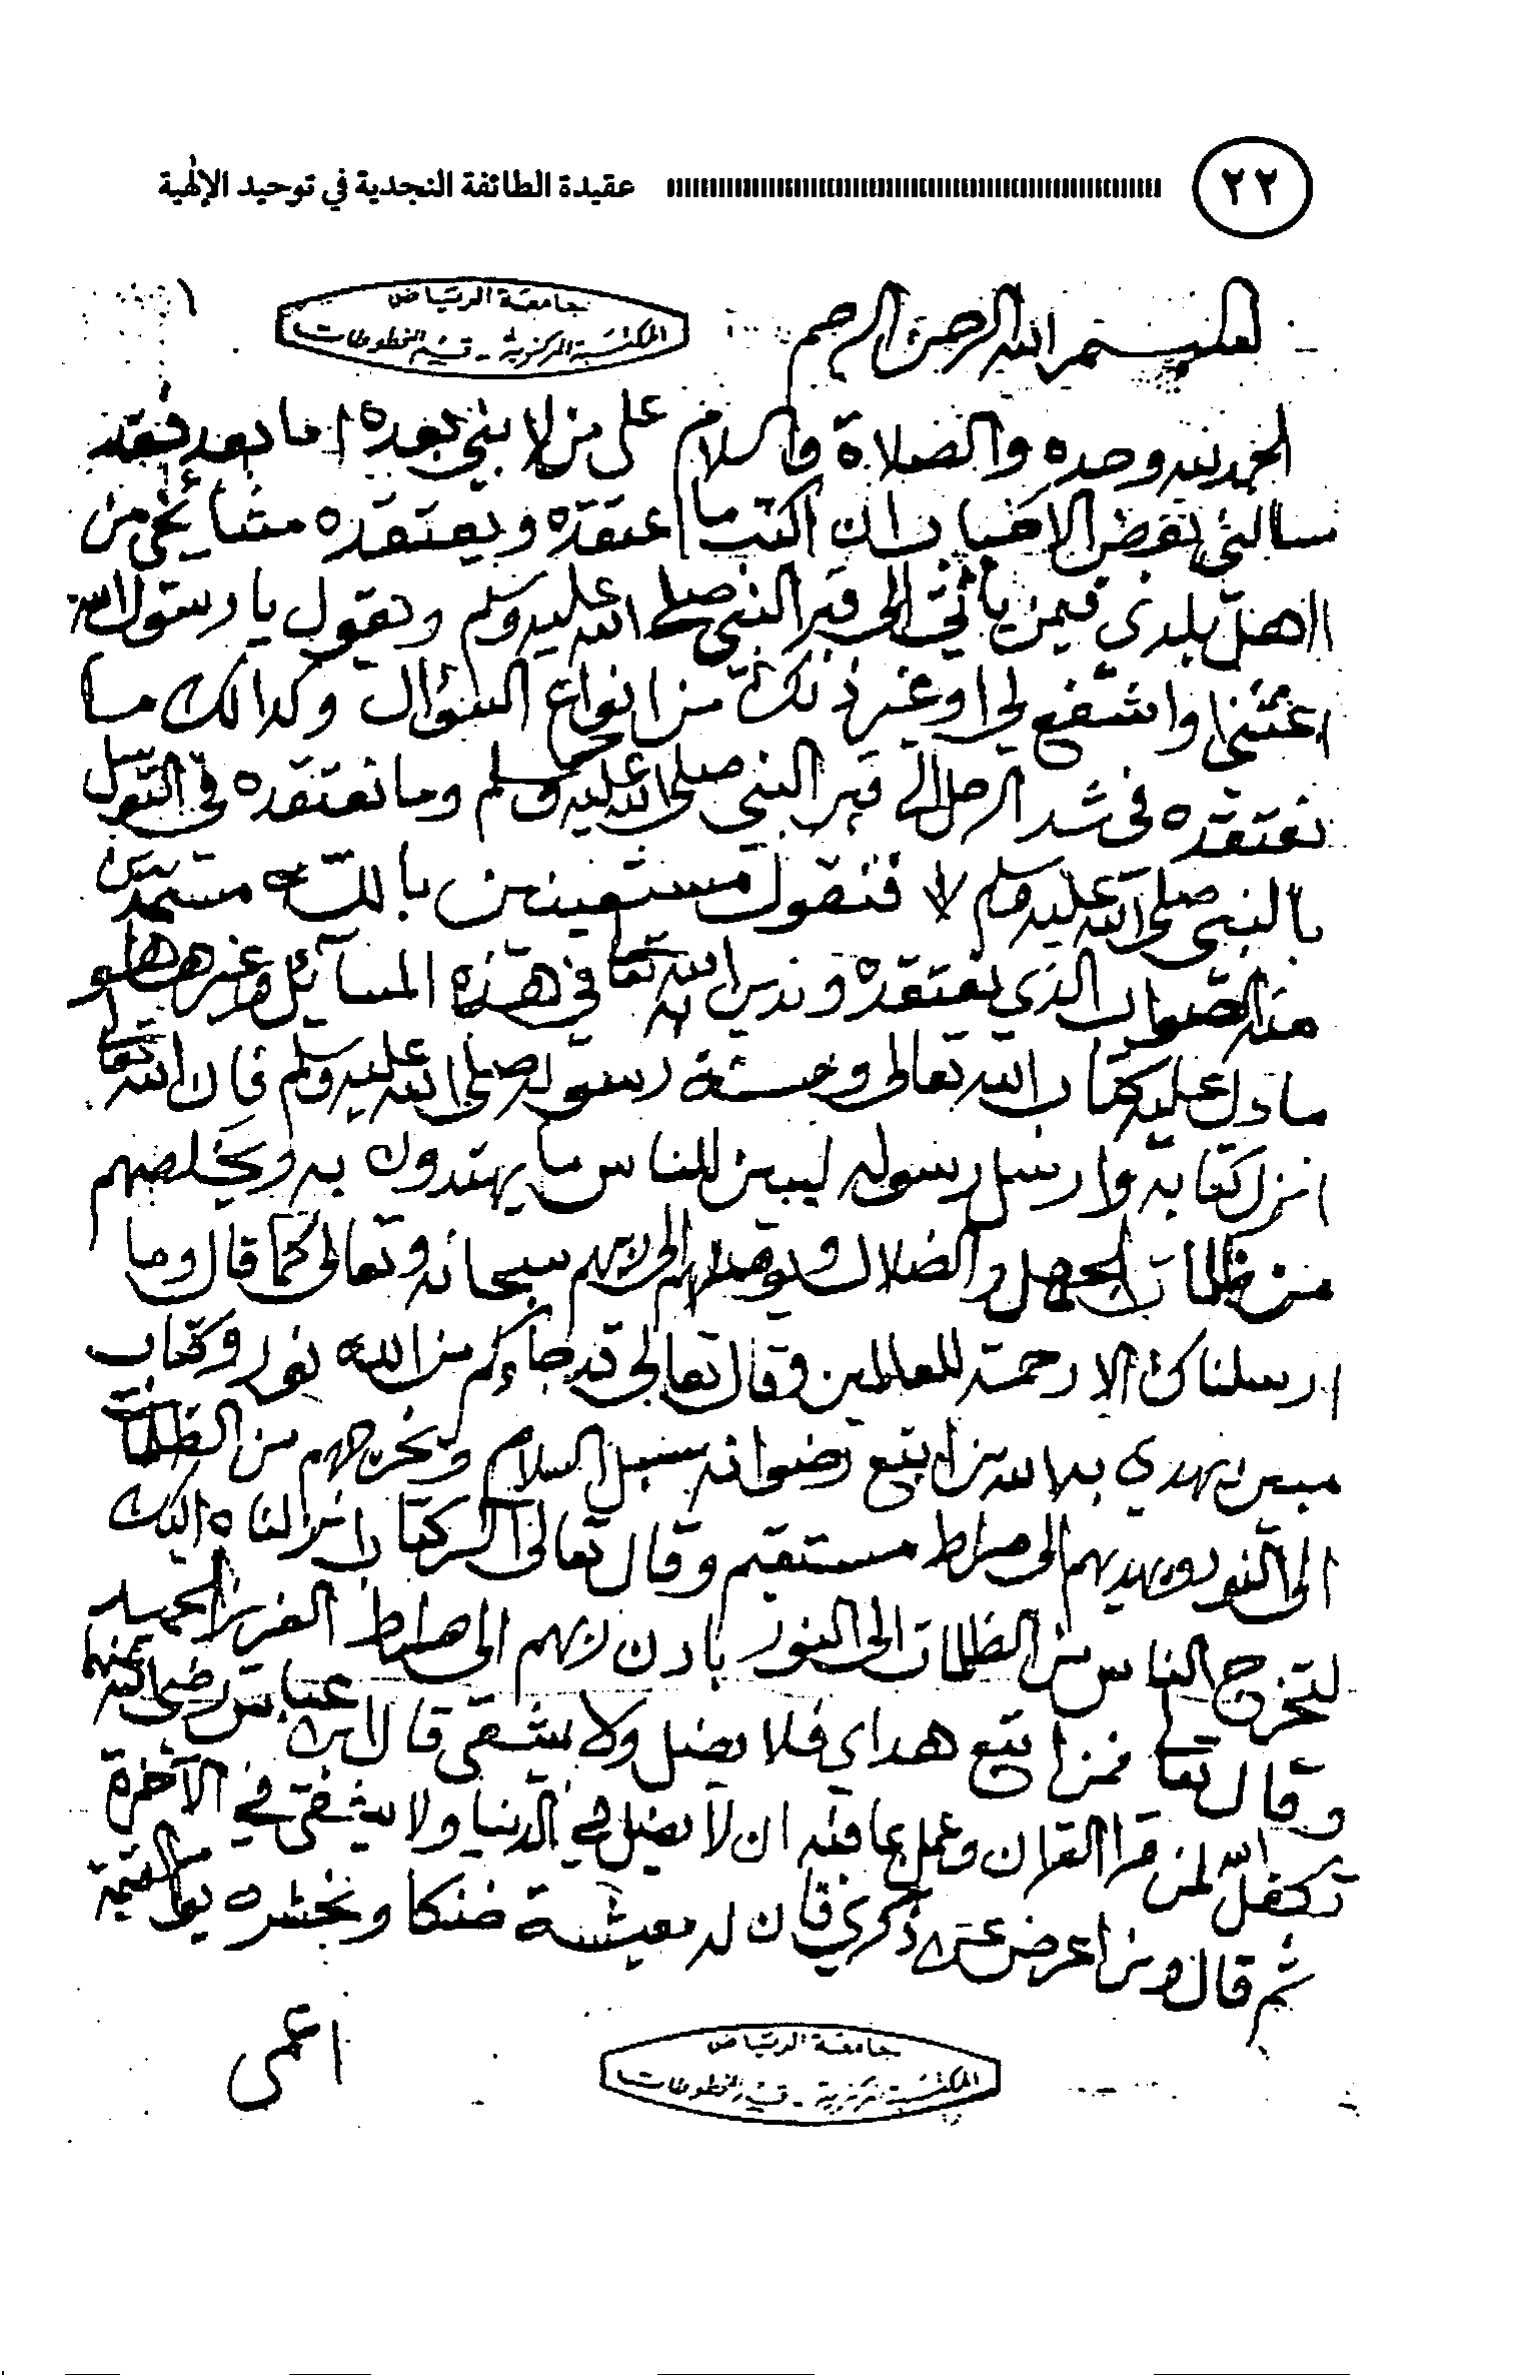 ٢٢
عقيدة الطائفة النجدية في توحيد الإلهية
جامعة الرياض
المكتبة المركزية - قسم المخطوطات
بسم الله الرحمن الرحيم
الحمد لله وحده والصلاة والسلام على من لا نبي بعده اما بعد فقد
سالني بعض الاخيار ان اكتب ما اعتقده ويعتقده مشايخي من
اهل بلدي فيمن يأتي الى قبر النبي صلى الله عليه وسلم ويقول يا رسول الله
اغثني او اشفع لي او غير ذلك من انواع السؤال وكذالك ما
نعتقده في شد الرحل الى قبر النبي صلى الله عليه وسلم وما نعتقده في التوسل
بالنبي صلى الله عليه وسلم فنقول مستعينين بالله مستمدين
منه الصواب الذي نعتقده وندين الله به تعا في هذه المسآئل وغيرها هو
ما دل عليه كتاب الله تعالى وسنة رسوله صلى الله عليه وسلم فان الله تعالى
انزل كتابه وارسل رسوله ليبين للناس ما يهتدون به ويخلصهم
من ظلمات الجهل والضلال ويوصلهم الى ربهم سبحانه وتعالى كما قال وما
ارسلناك الا رحمة للعالمين وقال تعالى قد جاءكم من الله نور وكتاب
مبين يهدي به الله من اتبع رضوانه سبل السلام ويخرجهم من الظلمات
الى النور ويهديهم الى صراط مستقيم وقال تعالى الر كتاب انزلناه اليك
لتخرج الناس من الظلمات الى النور باذن ربهم الى صراط العزيز الحميد
وقال تعا فمن اتبع هداي فلا يضل ولا يشقى قال ابن عباس رضي الله عنهما
تكفل الله لمن قرا القران وعمل بما فيه ان لا يضل في الدنيا ولا يشقى في الآخرة
ثم قال ومن اعرض عن ذكري فان له معيشة ضنكا ونحشره يوم القيمة
اعمى
جامعة الرياض
المكتبة المركزية - قسم المخطوطات